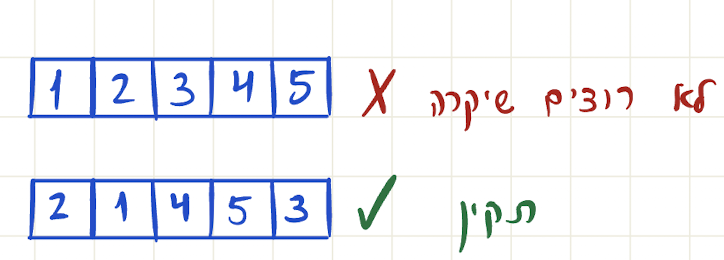 1 2 3 4 5 X לא רוצים שיקרה
2 1 4 5 3 ✓ תקין